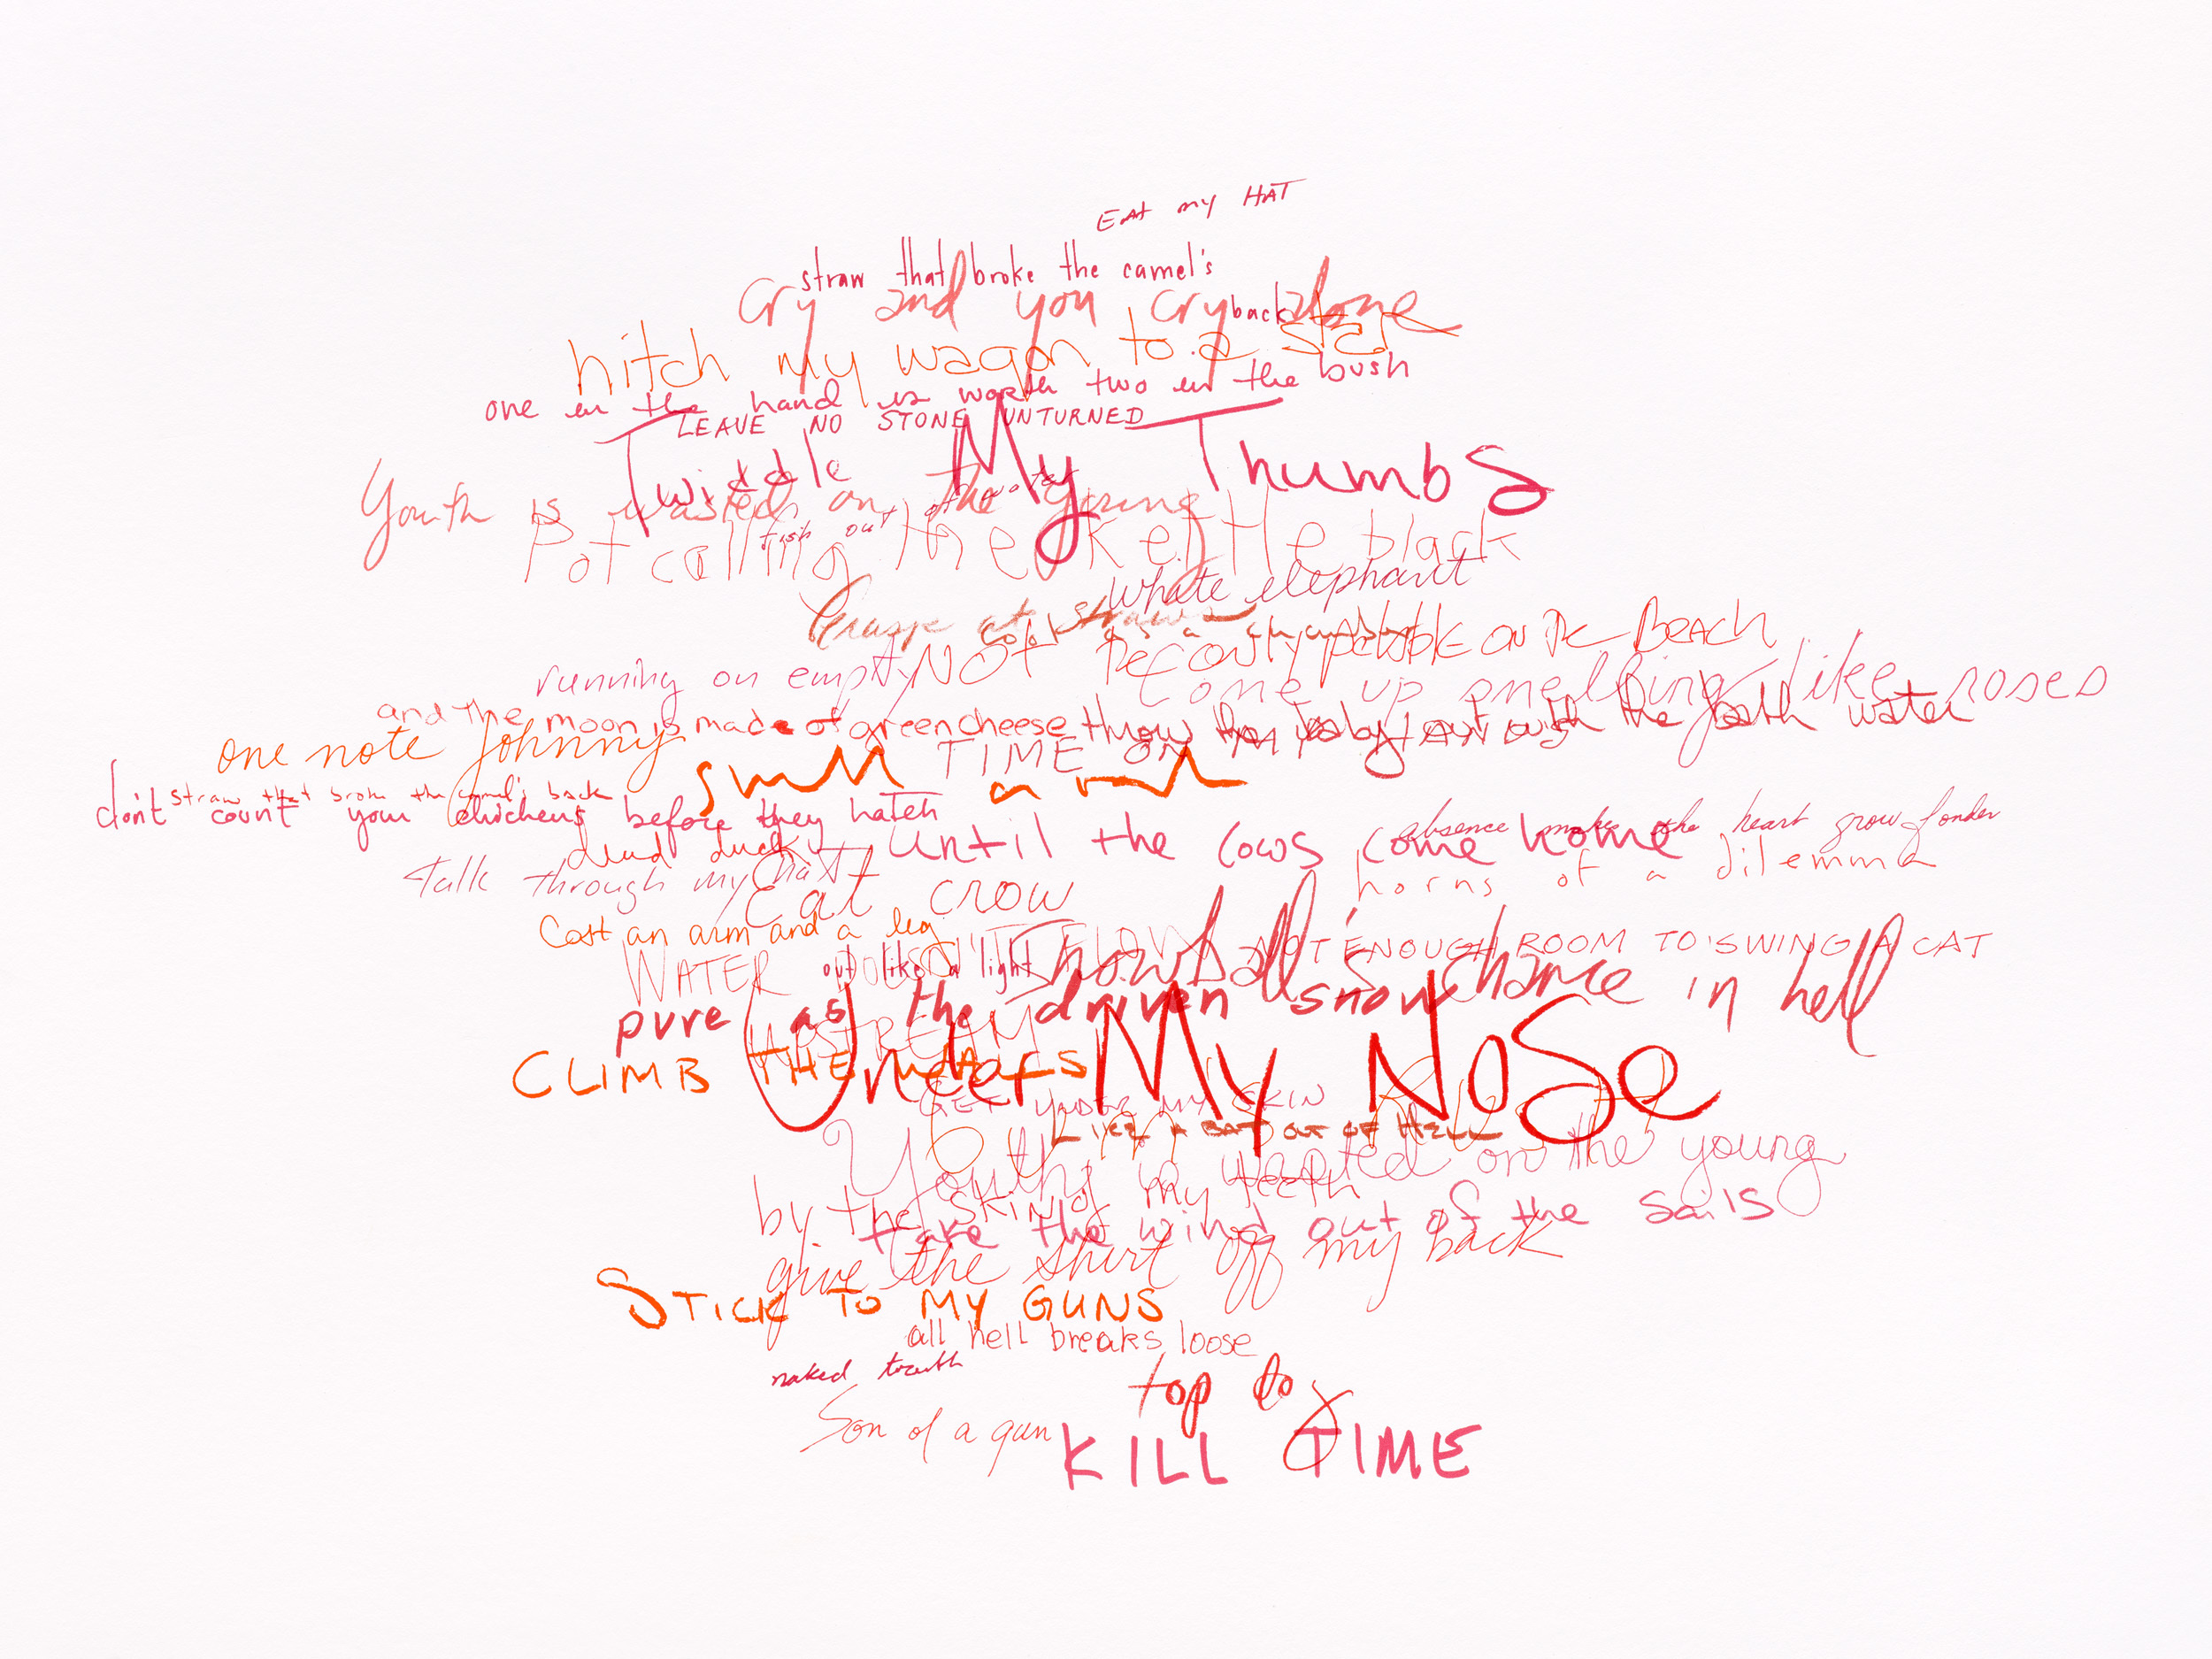 EAT my HAT
straw that broke the camel's
back
Cry and you cry alone
hitch my wagon to a star
one in the hand is worth two in the bush
LEAVE NO STONE UNTURNED
Twiddle My Thumbs
Youth is wasted on the young
fish out of water
Pot calling the kettle black
white elephant
Grasp at straws
cool as a cucumber
NOT The only pebble ON the BeACH
running on empty
Come up smelling like roses
and the moon is made of green cheese
throw the baby out with the bath water
one note Johnny
TIME ON MY HANDS
smell a rat
straw that broke the camel's back
don't count your chickens before they hatch
absence makes the heart grow fonder
until the cows come home
dead duck
horns of a dilemma
talk through my hat
eat crow
Cost an arm and a leg
NOT ENOUGH ROOM TO SWING A CAT
WATER DOESN'T FLOW
UPSTREAM
out like a light
Snowball's chance in hell
pure as the driven snow
Under My NoSe
CLIMB THE WALLS
GET UNDER MY SKIN
LIKE A BAT OUT OF HELL
Youth is wasted on the young
by the skin of my teeth
take the wind out of the sails
give the shirt off my back
STICK TO MY GUNS
all hell breaks loose
naked truth
top to
Son of a gun
KILL TIME